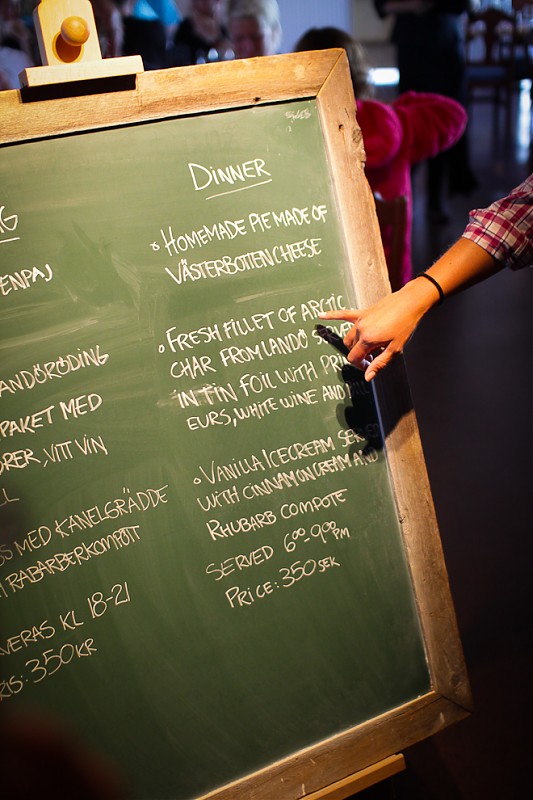 ENPAJ
ANDÖRÖDING
PAKET MED
ORER, VITT VIN
LL
SS MED KANELGRÄDDE
H RABARBERKOMPOTT
VERAS KL 18-21
RIS: 350KR
DINNER
HOMEMADE PIE MADE OF
VÄSTERBOTTEN CHEESE
FRESH FILLET OF ARCTIC
CHAR FROM LANDÖ
IN TIN FOIL WITH
EURS, WHITE WINE AND
VANILLA ICECREAM
WITH CINNAMON CREAM AND
RHUBARB COMPOTE
SERVED 6⁰⁰-9⁰⁰ PM
PRICE: 350 SEK